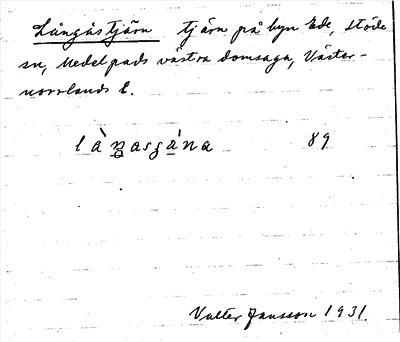 Långåstjärn tjärn på byn Ede, Stöde
sn, Medelpads västra domsaga, Väster-
norrlands l.
89
Valter Jansson 1931.